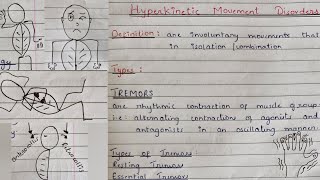 Hyperkinetic Movement Disorders
Definition: are involuntary movements that
in isolation/combination
Types:
TREMORS
are rhythmic contraction of muscle groups
i.e: alternating contraction of agonists and
antagonists in an oscillating manner
Types of Tremors
Resting Tremor
Essential Tremor
gy